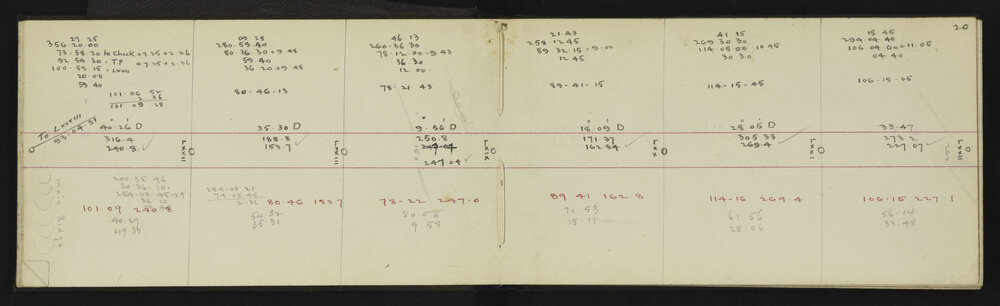 20
27 25
356.20.00
73.58.20 to check +7 25+2 36
92 54 30 - T.P +7 25+2 36
100-59.15
20.00
59 40
101-06 52
2 36
101 09 28
40.26 D
To Lxxviii
93.04 31
316.4
240 8
Lxvii
200.35.46
20.36.10
101.09 240.8
40.27
09 28
280.59.40
80 36.30+9 48
59 40
36 20+9 48
80-46-13
35.30 D
188.8
153.7
Lxviii
80-46 153-7
50 32
35 31
46 13
260-36 30
78.12 00-9.43
36.30
12 00
78.21 43
9.56 D
250.8
247.04
Lxix
78-22 247-0
80 06
9 58
21 43
259.12 45
89 32.15+9.00
12.45
89-41-15
18.09 D
171.37
162.84
Lxx
89 41 162-8
71 53
18 11
41 15
269 30.30
114.05 00-10.45
30.30
114-15-45
28.05 D
305.33
269.4
Lxxi
114-16 269.4
61.56
28.06
15 45
294 04.40
106 04 00+11.05
04.40
106-15-05
33.47
273.2
227.07
Lxxii
106-15 227-1
56.14
33.48